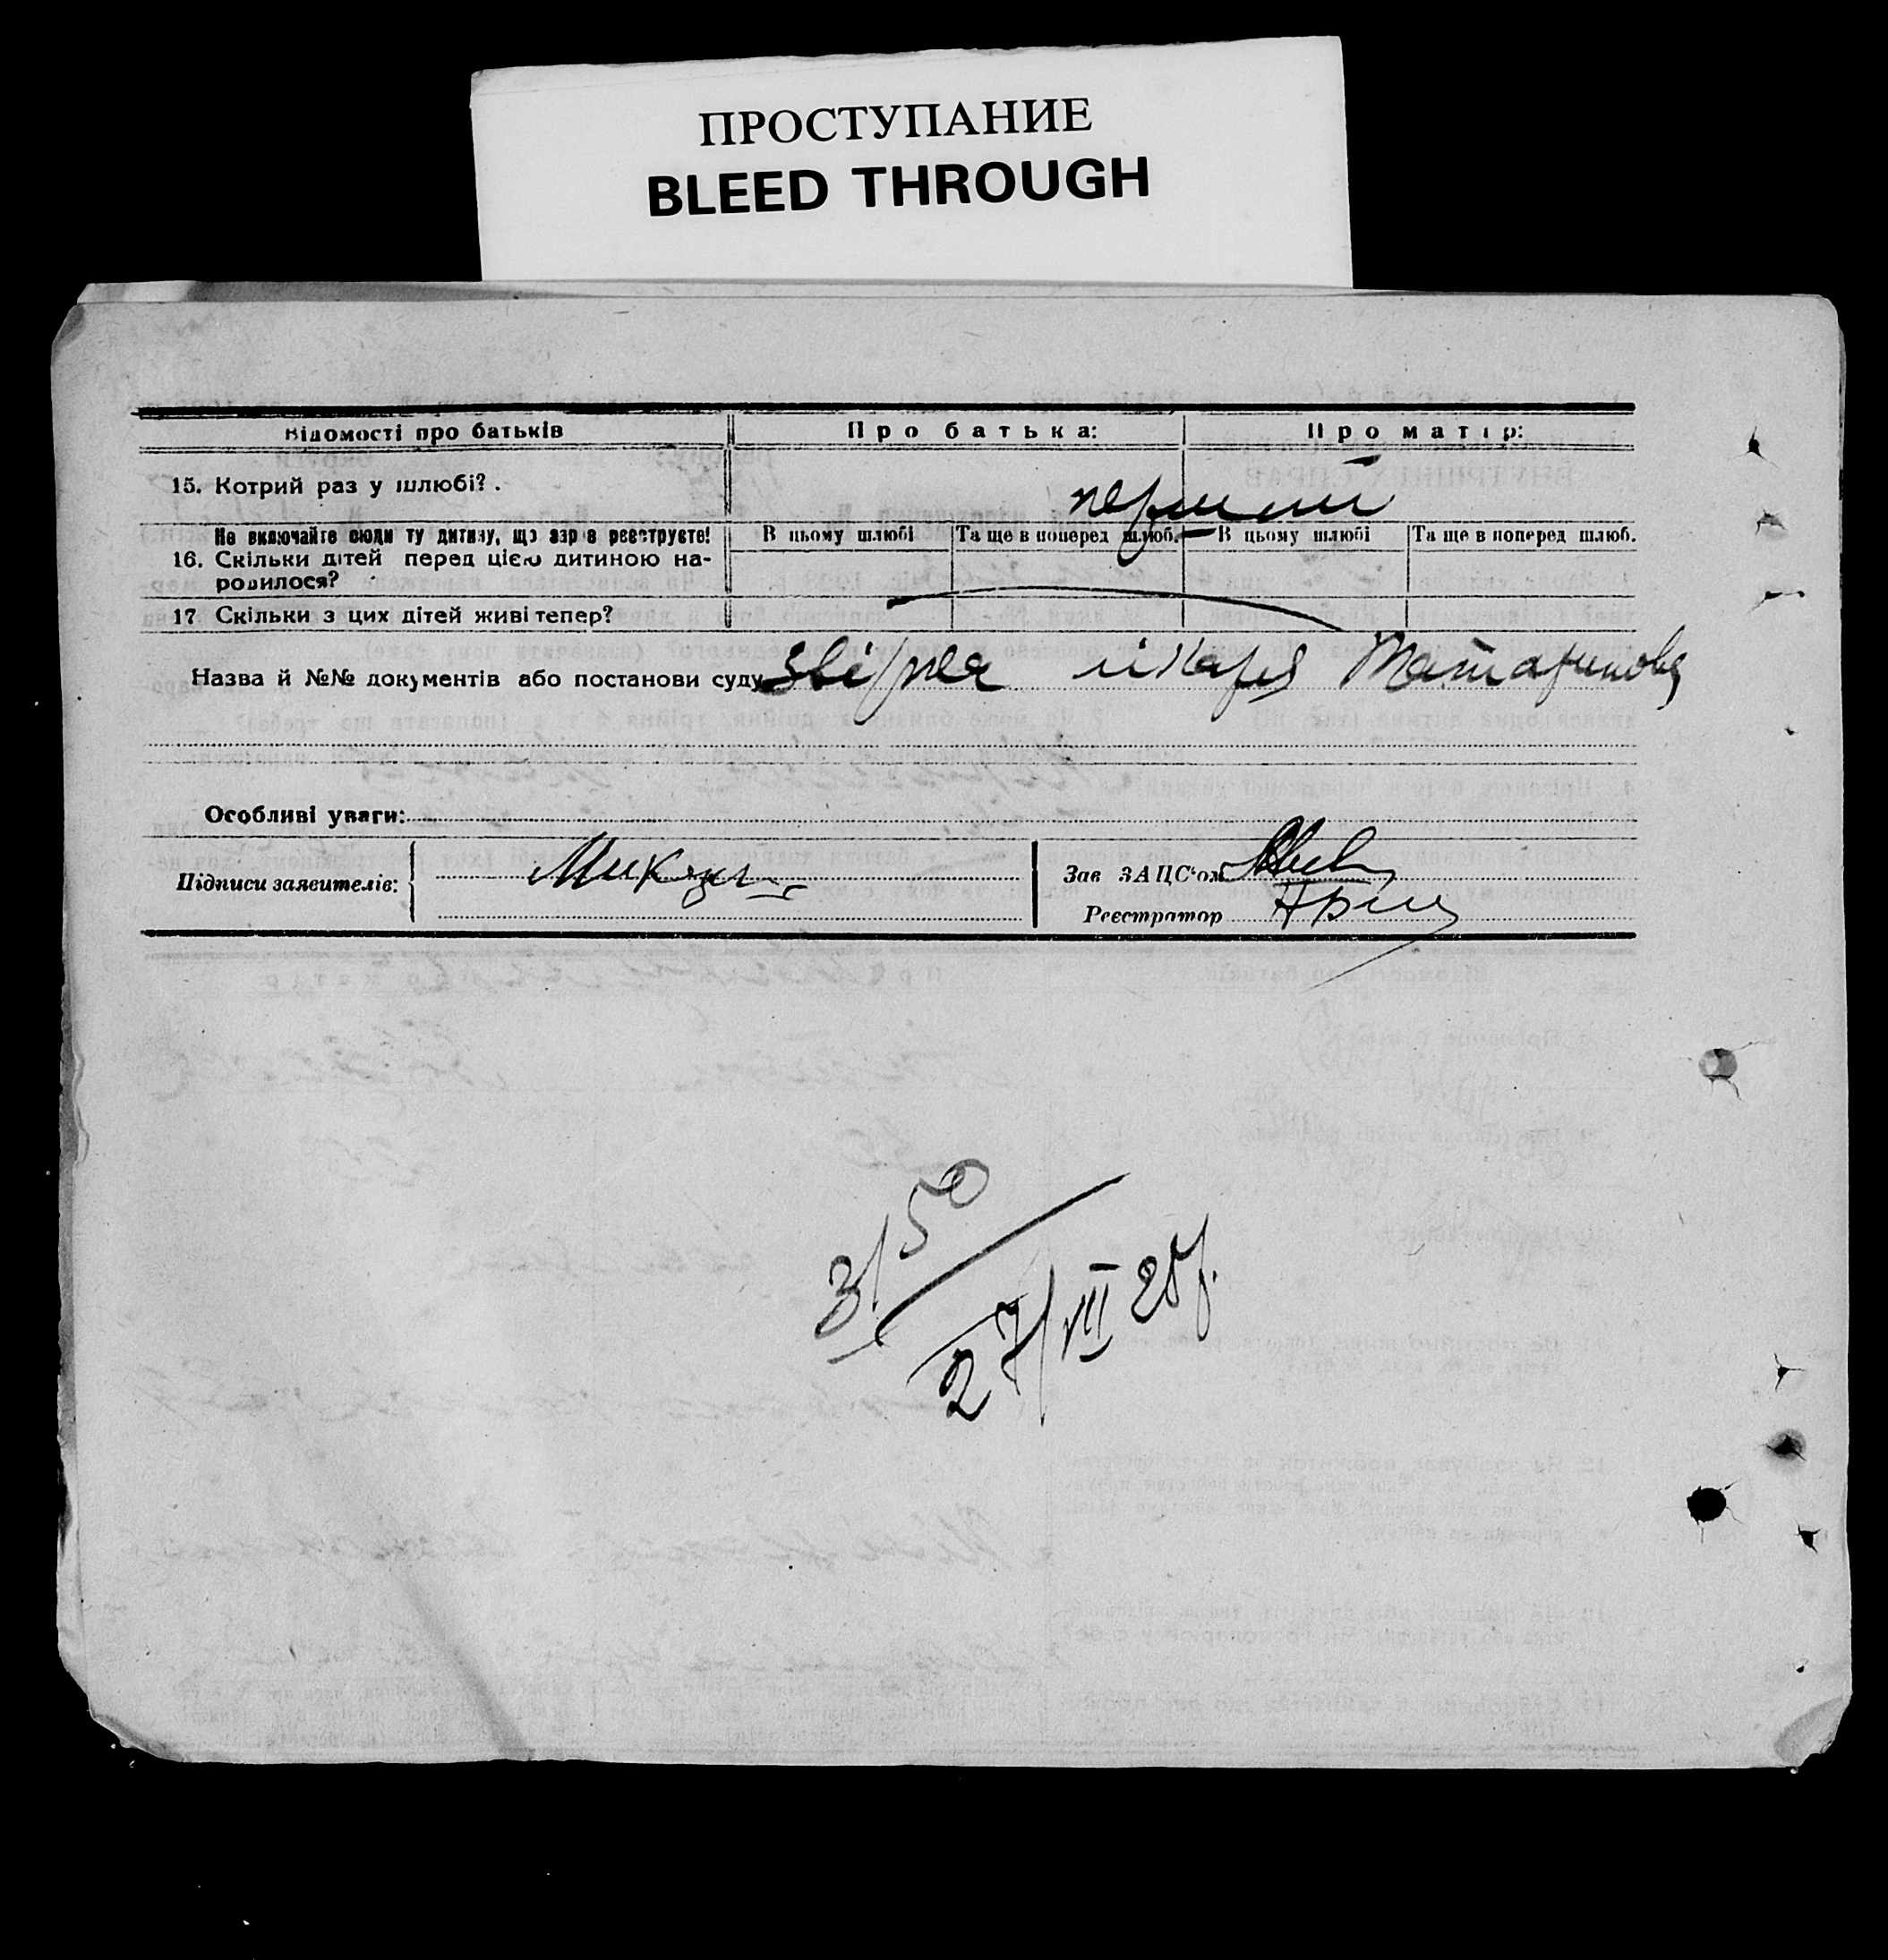 ПРОСТУПАНИЕ
BLEED THROUGH
Відомості про батьків
Про батька:
Про матір:
15. Котрий раз у шлюбі?.
перший
Не включайте сюди ту дитину, що зараз реєструєте!
16. Скільки дітей перед цією дитиною на-
родилося?
В цьому шлюбі
Та ще в поперед шлюб.
В цьому шлюбі
Та ще в поперед шлюб.
17 Скільки з цих дітей живі тепер?
Назва й №№ документів або постанови суду
лікаря Татаринова
Особливі уваги:
Підписи заявителів:
Зав ЗАЦС'ом
Реєстратор
3/50
27/VII 25р.